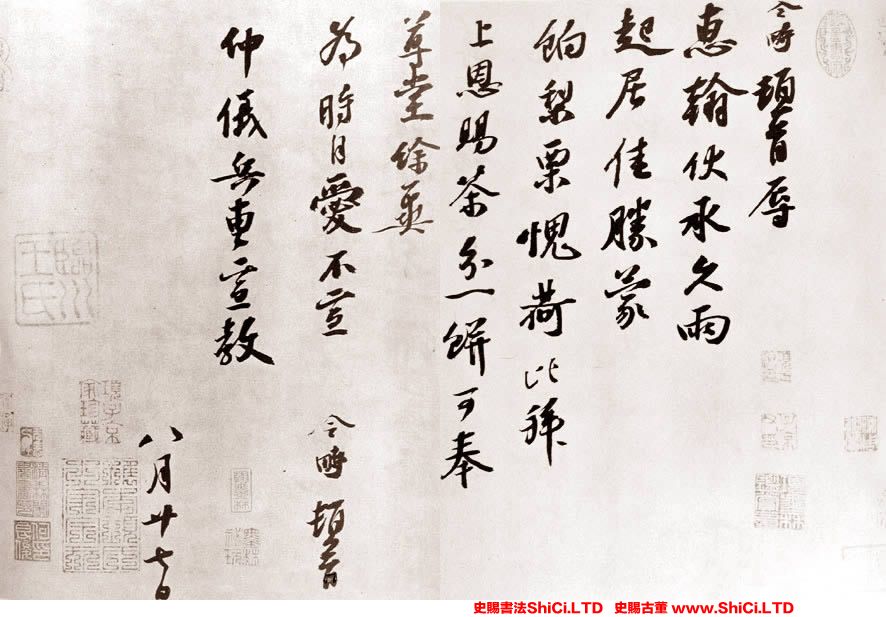 令畤頓首辱
惠翰伏承久雨
起居佳勝蒙
餉梨栗愧荷比拜
上恩賜茶分一餅可奉
尊堂餘冀
為時自愛不宣 令畤頓首
仲儀兵曹宣教
八月廿七日
臨川
王氏
項子京
家珍藏
史賜書法ShiCi.LTD 史賜古董 www.ShiCi.LTD